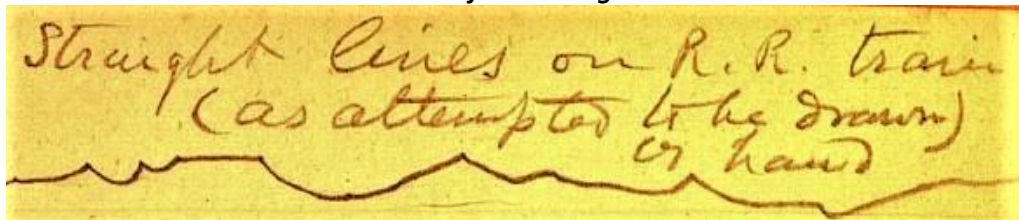 Straight lines on R.R. train
(as attempted to be drawn)
by hand